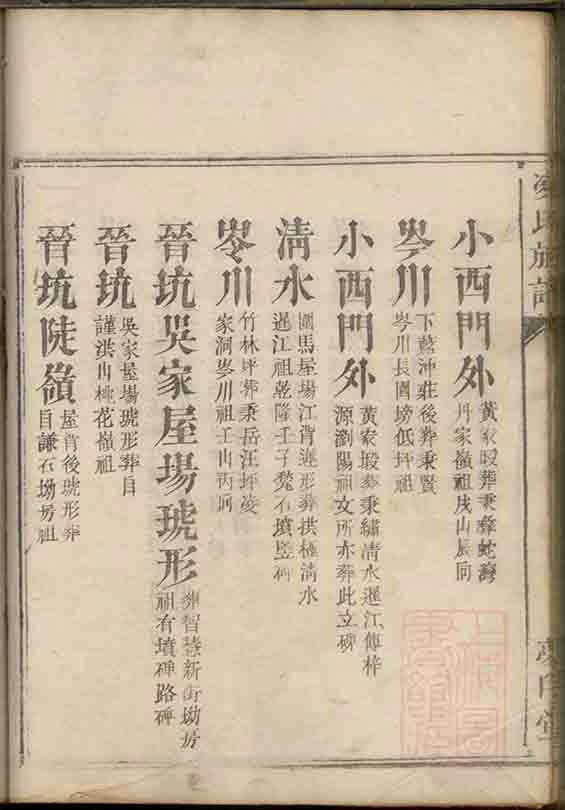 凌氏族譜
小西門外 黃家塅葬秉彝蛇灣
丹家嶺祖戌山辰向
岑川 下藍沖莊後葬秉賢
岑川長圍塝低坪祖
小西門外 黃家塅葬秉繡清水遲江傳梓
源瀏陽祖文所亦葬此立碑
清水 圓馬屋場江背遲形葬拱極清水
遲江祖乾隆壬子甃石墳竪碑
岑川 竹林坪葬秉岳江坪凌
家洞岑川祖壬山丙向
晉坑吳家屋場琥形 葬智慧新街坳房
祖有墳碑路碑
晉坑 吳家屋場琥形葬自
謹洪山桃花嶺祖
晉坑陡嶺 屋背後琥形葬
自謙石坳房祖